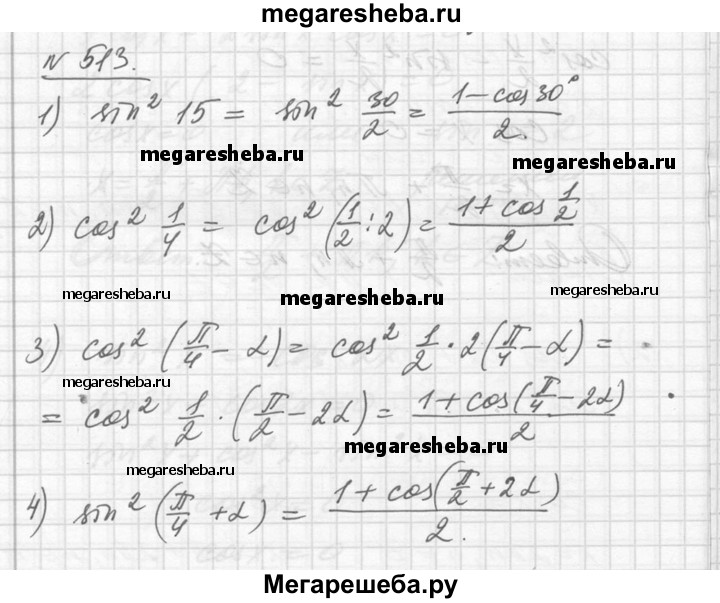 megaresheba.ru
№ 513.
1) sin² 15 = sin² 30/2 = (1 - cos 30°)/2.
megaresheba.ru megaresheba.ru
2) cos² 1/4 = cos² (1/2 : 2) = (1 + cos 1/2)/2
megaresheba.ru megaresheba.ru megaresheba.ru
3) cos² (π/4 - α) = cos² 1/2 · 2(π/4 - α) =
megaresheba.ru
= cos² 1/2 · (π/2 - 2α) = (1 + cos(π/4 - 2α))/2
megaresheba.ru
megaresheba.ru
4) sin² (π/4 + α) = (1 + cos(π/2 + 2α))/2.
Мегарешеба.ру